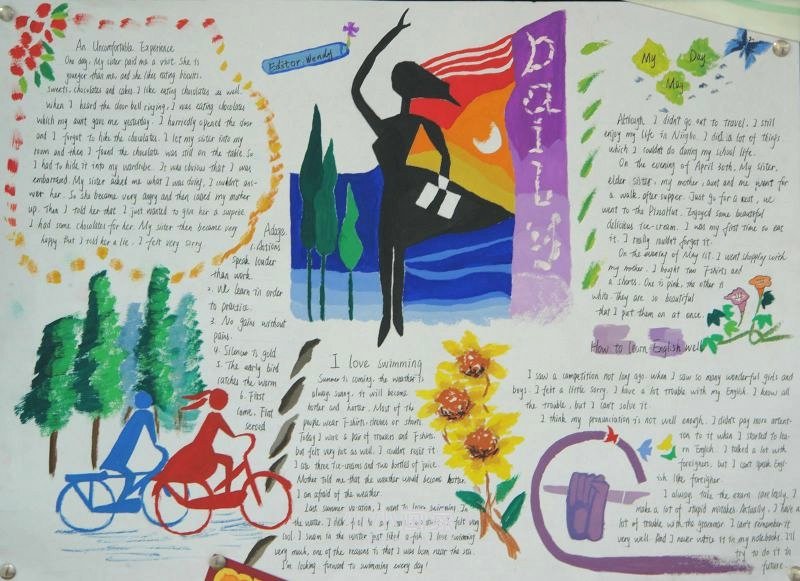 An Uncomfortable Experience
One day, My sister paid me a visit. She is
younger than me. and she likes eating
sweets, chocolates and cakes. I like eating chocolates as well.
When I heard the door-bell ringing, I was eating chocolates
which my aunt gave me yesterday. I hurriedly opened the door
and I forgot to hide the chocolates. I let my sister into my
room and then I found the chocolate was still on the table. So
I had to hide it into my wardrobe. It was obvious that I was
embarrased. My sister asked me what I was doing, I couldn't ans-
wer her. So she became very angry and then called my mother
up. Then I told her that I just wanted to give her a
I had some chocolates for her. My sister then became very
happy but I told her a lie. I felt very sorry.
Editor: Wendy
Daily
My Day
May
Although I didn't go out to travel. I still
enjoy my life in Ningbo. I did a lot of things
which I couldn't do during my school life.
On the evening of April 30th, My sister,
elder sister, my mother, aunt and me went for
a walk after supper. Just go for a rest, we
went to the Enjoyed some beautiful
delicious ice-cream. I was my first time to eat
it. I really couldn't forget it.
On the morning of May 1st. I went shopping with
my mother. I bought two T-shirts and
a shorts. One is pink, the other is
white. They are so beautiful
that I put them on at once.
Adage
1. Actions
speak louder
than work.
2. We learn in order
to practice.
3. No gains without
pains.
4. Silence is gold
5. The early bird
catches the warm
6. First
come, First
served
I love swimming
Summer is coming. the weather is
always sunny. it will become
hotter and hotter. Most of the
people wear T-shirts, or shorts.
Today I wore a pair of trousers and T-shirt.
but felt very hot as well. I couldn't resist it
I ate three ice-creams and two bottled of juice.
Mother told me that the weather would become hotter.
I am afraid of the weather.
Last summer vacation, I went to learn swimming. In
the water. I felt very
cool. I swam in the water just liked a fish. I love swimming
very much, one of the reasons is that I was born near the sea.
I'm looking forward to swimming every day!
How to learn English well
I saw a competition not long ago. when I saw so many wonderful girls and
boys. I felt a little sorry. I have a lot trouble with my English. I know all
the trouble, but I can't solve it.
I think my pronunciation is not well enough. I didn't pay more attent-
ion to it when I started to lea-
rn English. I talked a lot with
foreigners. but I can't speak Engl-
ish like foreigner.
I always take the exam carelessly. I
make a lot of stupid mistakes. Actually, I have a
lot of trouble with the grammar. I can't remember it
very well. And I never write it in my notebooks. I'll
try to do it in
future.